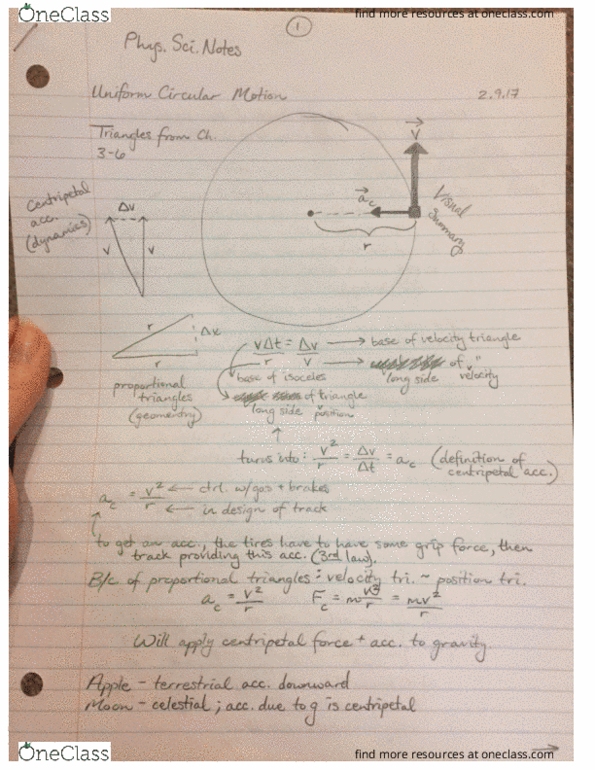 OneClass
find more resources at oneclass.com
1
Phys. Sci. Notes
Uniform Circular Motion
2.9.17
Triangles from Ch.
3-6
v
Centripetal
acc.
(dynamics)
Δv
v
v
ac
r
Visual
Summary
r
Δx
r
proportional
triangles
(geometry)
vΔt = Δv → base of velocity triangle
r v → of "
base of isoceles
long side velocity
of triangle
long side position
turns into: v²/r = Δv/Δt = ac (definition of
centripetal acc.)
ac = v² ← ctrl. w/gas + brakes
r ← in design of track
to get an acc., the tires have to have some grip force, then
track providing this acc. (3rd law).
B/c of proportional triangles: velocity tri. ~ position tri.
ac = v²/r Fc = m v²/r = mv²/r
Will apply centripetal force + acc. to gravity.
Apple - terrestrial acc. downward
Moon - celestial; acc. due to g is centripetal
OneClass
find more resources at oneclass.com